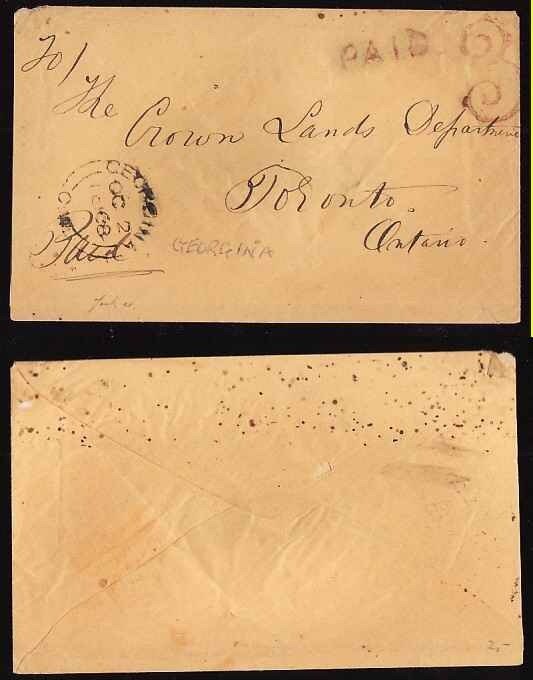 PAID 3
To /
The
Crown Lands Department
Toronto
Ontario.
GEORGINA
OC 2
1868
Paid
GEORGINA
2,-